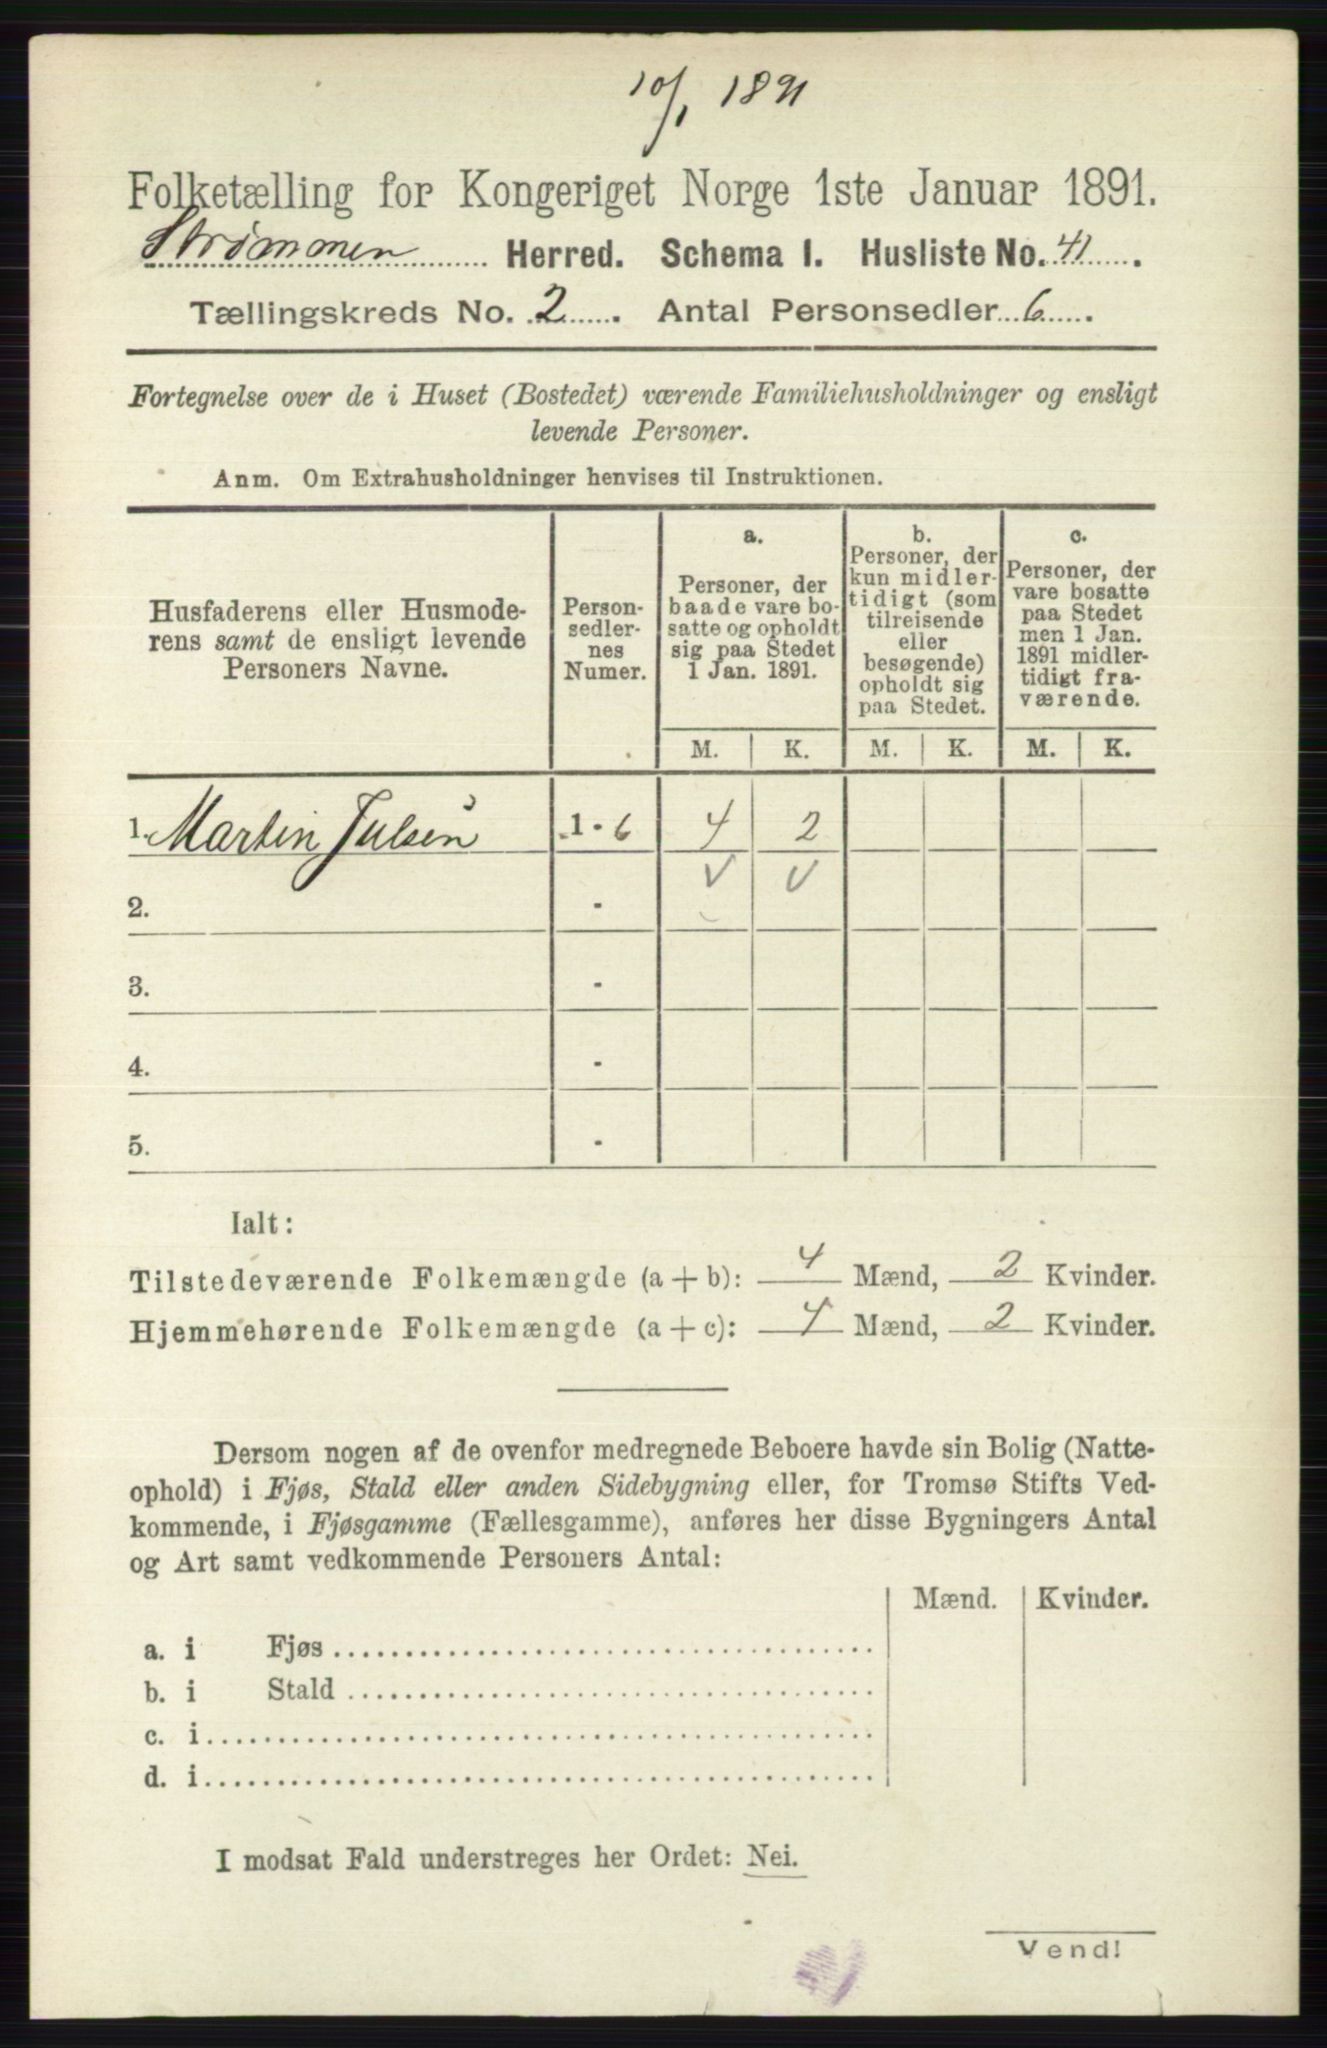 10/1 1891
Folketælling for Kongeriget Norge 1ste Januar 1891.
Strømmen Herred. Schema I. Husliste No. 41.
Tællingskreds No. 2. Antal Personsedler 6.
Fortegnelse over de i Huset (Bostedet) værende Familiehusholdninger og ensligt
levende Personer.
Anm. Om Extrahusholdninger henvises til Instruktionen.
Husfaderens eller Husmode-
rens samt de ensligt levende
Personers Navne.
Person-
sedler-
nes
Numer.
a.
Personer, der
baade vare bo-
satte og opholdt
sig paa Stedet
1 Jan. 1891.
b.
Personer, der
kun midler-
tidigt (som
tilreisende
eller
besøgende)
opholdt sig
paa Stedet.
c.
Personer, der
vare bosatte
paa Stedet
men 1 Jan.
1891 midler-
tidigt fra-
værende.
M. K. M. K. M. K.
1. Martin Julsen 1 - 6 4 2
2. -
3. -
4. -
5. -
Ialt:
Tilstedeværende Folkemængde (a + b): 4 Mænd, 2 Kvinder.
Hjemmehørende Folkemængde (a + c): 4 Mænd, 2 Kvinder.
Dersom nogen af de ovenfor medregnede Beboere havde sin Bolig (Natte-
ophold) i Fjøs, Stald eller anden Sidebygning eller, for Tromsø Stifts Ved-
kommende, i Fjøsgamme (Fællesgamme), anføres her disse Bygningers Antal
og Art samt vedkommende Personers Antal:
Mænd. Kvinder.
a. i Fjøs
b. i Stald
c. i
d. i
I modsat Fald understreges her Ordet: Nei.
Vend!